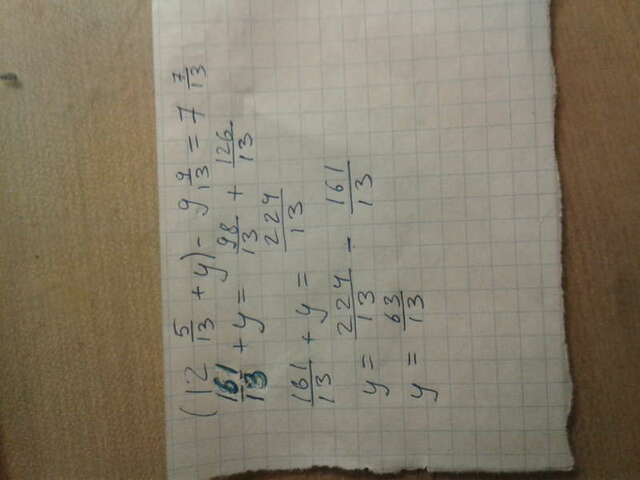 (12 5/13 + y) - 9 9/13 = 7 7/13
161/13 + y = 98/13 + 126/13
161/13 + y = 224/13
y = 224/13 - 161/13
y = 63/13